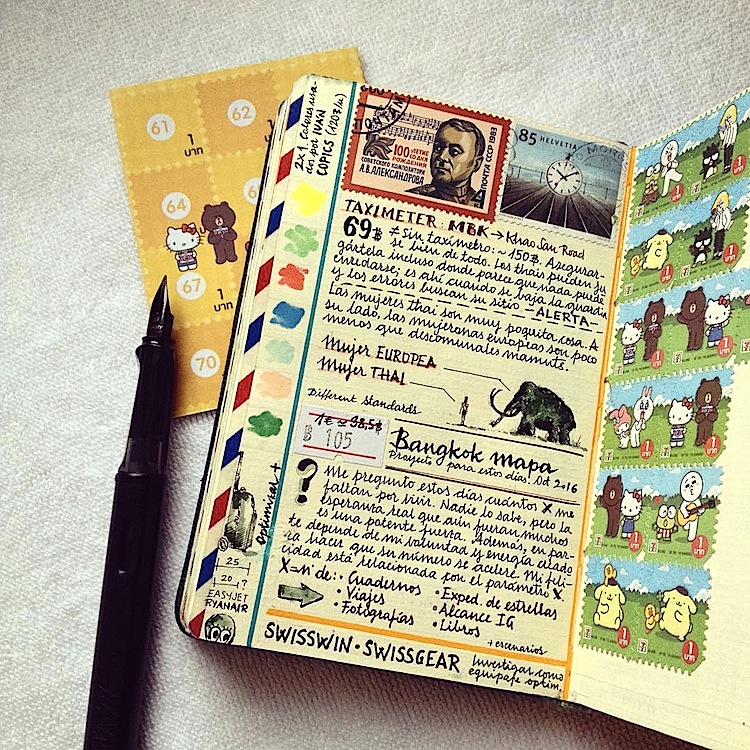 61
1
บาท
62
64
67
1
บาท
70
2x1. Colores usa-
dos por IVAN
COPICS (120฿/u)
100 ЛЕТИЕ
СО ДНЯ
РОЖДЕНИЯ
СОВЕТСКОГО КОМПОЗИТОРА
А.В.АЛЕКСАНДРОВА
ПОЧТА СССР
1983
85 HELVETIA
TAXIMETER: MBK → Khao San Road
69฿ ≠ Sin taxímetro: ~ 150฿. Asegurar-
se bien de todo. Los thais pueden ju-
gártela incluso donde parece que nada puede
enredarse; es ahí cuando se baja la guardia
y los errores buscan su sitio. -ALERTA-
Las mujeres thai son muy poquita cosa. A
su lado, las mujeronas europeas son poco
menos que descomunales mamuts.
Mujer EUROPEA
Mujer THAI
Different Standards
1€ ≈ 38,5฿
฿ 105
Bangkok mapa
Proyecto para estos días. Oct 2016
? Me pregunto estos días cuántos X me
faltan por vivir. Nadie lo sabe, pero la
esperanza real que aún fueran muchos
es una potente fuerza. Además, en par-
te depende de mi voluntad y energía alado
ra hacer que su número se acelere. Mi feli-
cidad está relacionada con el parámetro X.
X = nº de: • Cuadernos
• Viajes
• Fotografías
• Exped. de estrellas
• Alcance IG
• Libros
+ escenarios
optimizar +
25
20 ?
EASYJET
RYANAIR
SWISSWIN · SWISSGEAR
Investigar como
equipaje optim.
1
บาท
1
บาท
1
บาท
1
บาท
1
บาท
1
บาท